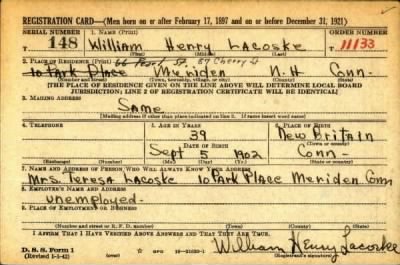 REGISTRATION CARD—(Men born on or after February 17, 1897 and on or before December 31, 1921)
SERIAL NUMBER 1. NAME (Print) ORDER NUMBER
148 William Henry LaCoske 11133
(First) (Middle) (Last)
2. PLACE OF RESIDENCE (Print) 87 Cherry St
10 Park Place Meriden N.H Conn.
(Number and street) (Town, township, village, or city) (County) (State)
[THE PLACE OF RESIDENCE GIVEN ON THE LINE ABOVE WILL DETERMINE LOCAL BOARD
JURISDICTION; LINE 2 OF REGISTRATION CERTIFICATE WILL BE IDENTICAL]
3. MAILING ADDRESS
Same
[Mailing address if other than place indicated on line 2. If same insert word same]
4. TELEPHONE 5. AGE IN YEARS 6. PLACE OF BIRTH
39 New Britain
DATE OF BIRTH (Town or county)
Sept 5 1902 Conn-
(Exchange) (Number) (Mo.) (Day) (Yr.) (State or country)
7. NAME AND ADDRESS OF PERSON WHO WILL ALWAYS KNOW YOUR ADDRESS
Mrs. Teresa LaCoske 10 Park Place Meriden Conn
8. EMPLOYER'S NAME AND ADDRESS
unemployed-
9. PLACE OF EMPLOYMENT OR BUSINESS
(Number and street or R. F. D. number) (Town) (County) (State)
I AFFIRM THAT I HAVE VERIFIED ABOVE ANSWERS AND THAT THEY ARE TRUE.
D. S. S. Form 1
(Revised 1-1-42) GPO 16-21630-1 William Henry Lacoske
(Registrant's signature)